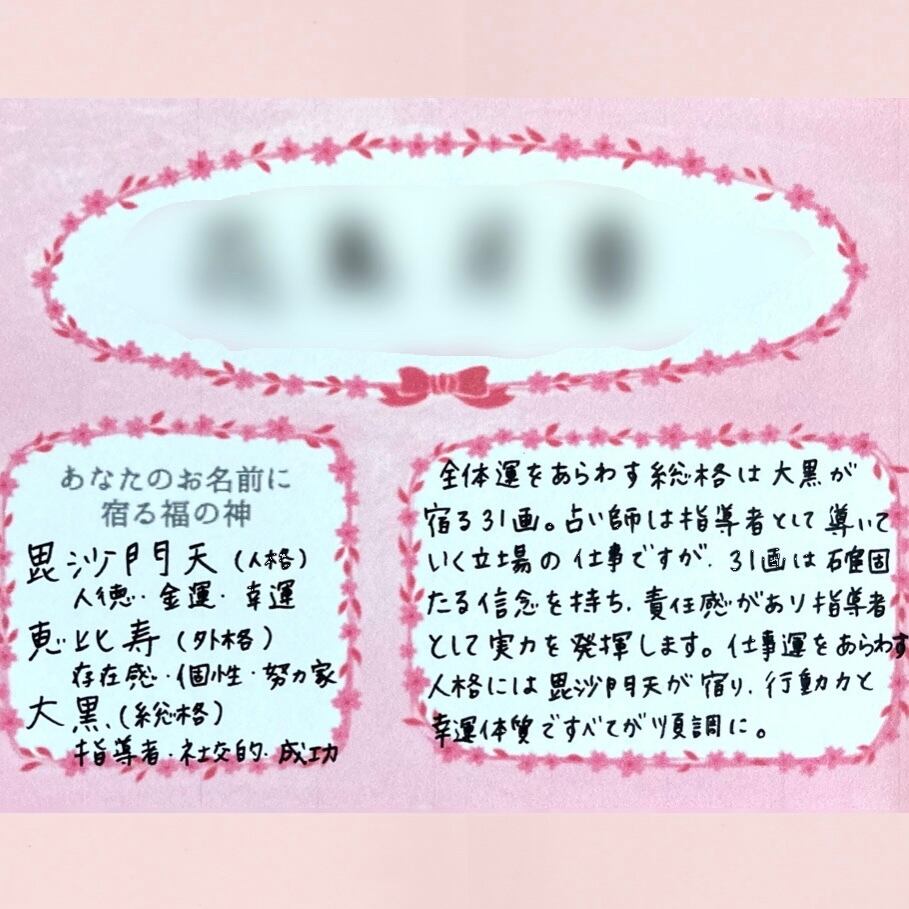 あなたのお名前に
宿る福の神
毘沙門天(人格)
人徳・金運・幸運
恵比寿(外格)
存在感・個性・努力家
大黒(総格)
指導者・社交的・成功
全体運をあらわす総格は大黒が
宿る31画。占い師は指導者として導いて
いく立場の仕事ですが、31画は確固
たる信念を持ち、責任感があり指導者
として実力を発揮します。仕事運をあらわす
人格には毘沙門天が宿り、行動力と
幸運体質ですべてが順調に。